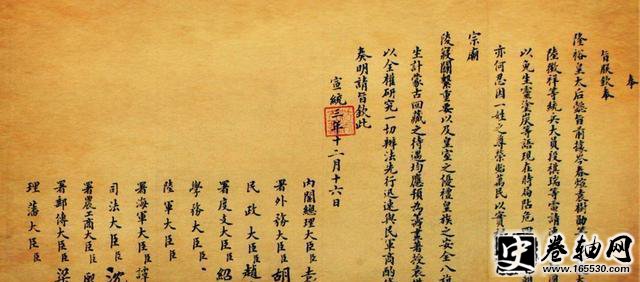 奉
旨朕欽奉
隆裕皇太后懿旨前據岑春煊袁樹勛
陸徵祥等統兵大員段祺瑞等電請速
以免生靈塗炭等語現在時局阽危四
亦何忍因一姓之尊榮貽萬民以實
宗廟
陵寢關繫重要以及皇室之優禮皇族之安全八旗
生計蒙古回藏之待遇均應預為籌畫著授袁
以全權研究一切辦法先行迅速與民軍商酌
奏明請旨欽此
宣統三年十二月十六日
內閣總理大臣臣袁
署外務大臣臣胡
民政大臣臣趙
署度支大臣臣紹
學務大臣臣
陸軍大臣臣
署海軍大臣臣譚
司法大臣臣沈
署農工商大臣臣熙
署郵傳大臣臣梁
理藩大臣臣
卷轴网
www.165530.com